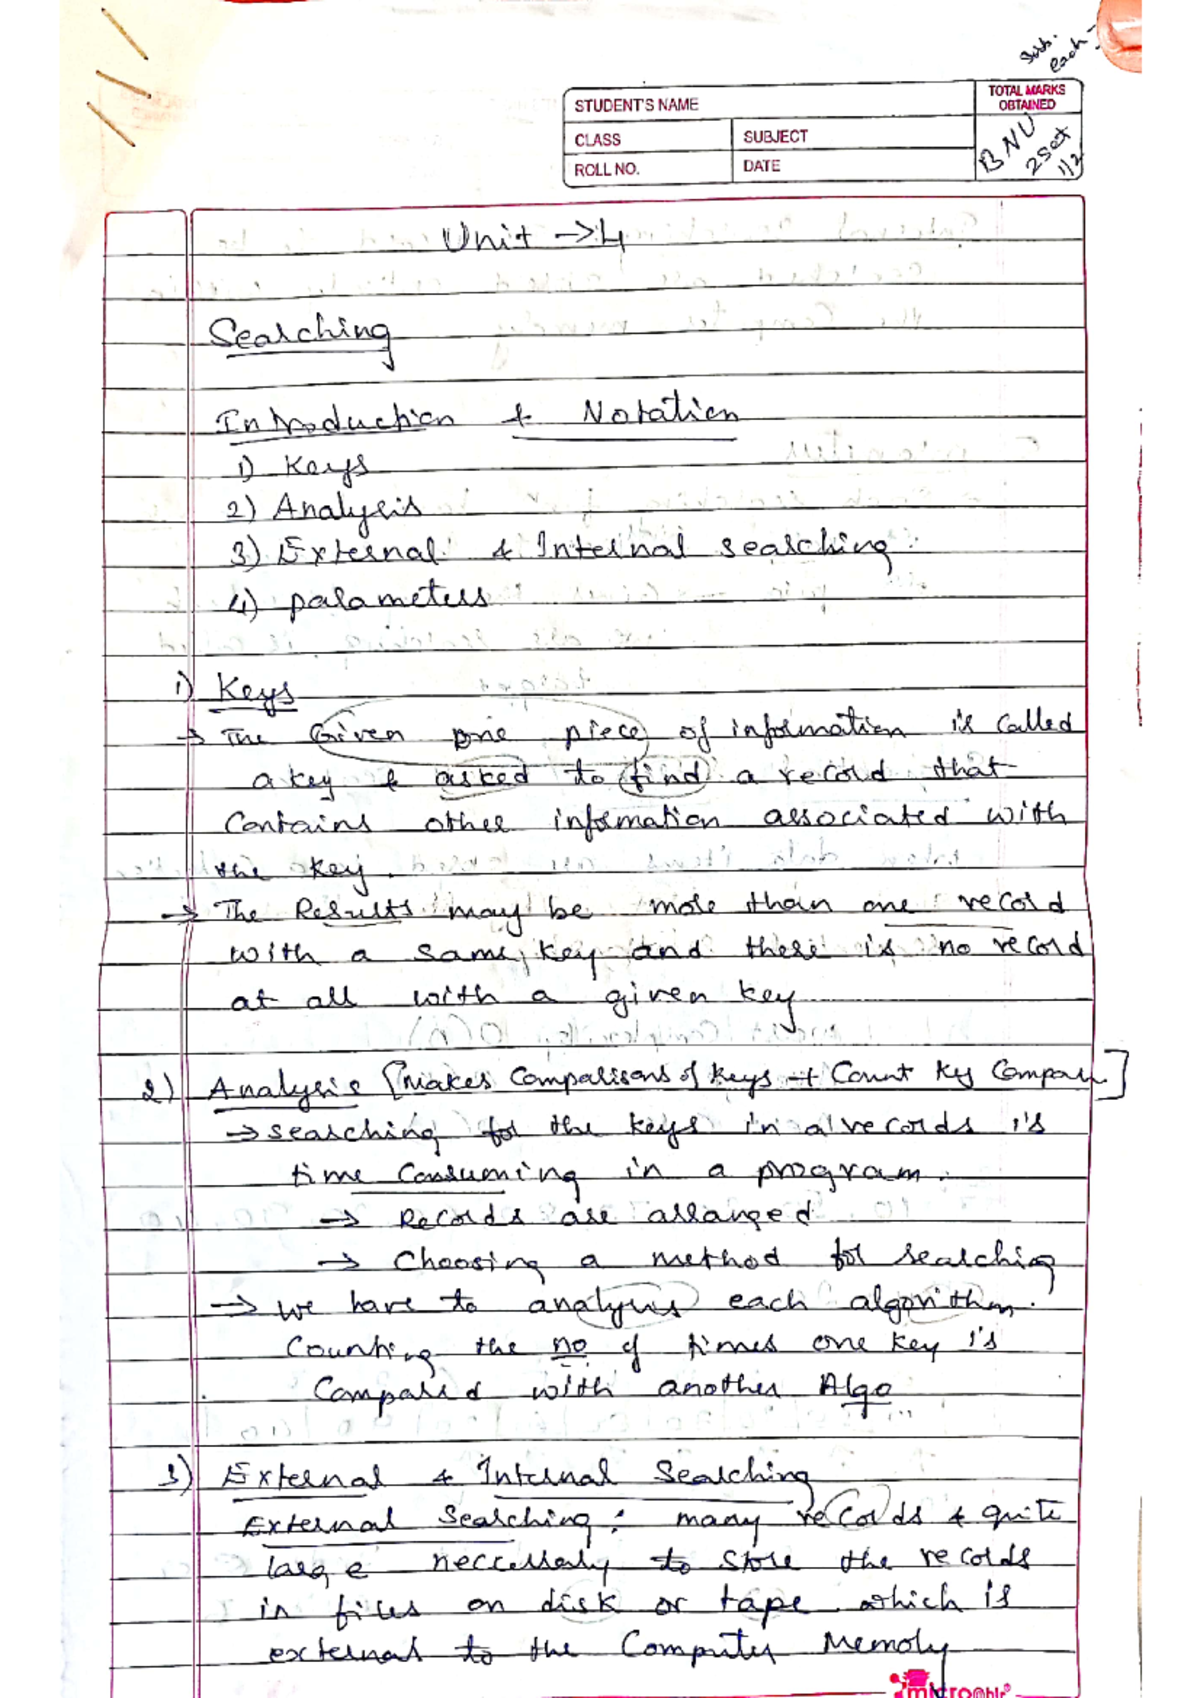 Sub.
each-
STUDENT'S NAME
TOTAL MARKS
OBTAINED
CLASS
SUBJECT
BNU
2 Set
1/2
ROLL NO.
DATE
Unit → 4
Searching
Introduction & Notation
1) Keys
2) Analysis
3) External & Internal searching.
4) parameters
1) Keys
→ The Given one piece of information is called
a key & asked to find a record that
Contains other information associated with
the key.
→ The Results may be more than one record
with a same key and there is no record
at all with a given key
2) Analysis [Makes Comparisons of keys → Count Key Compar.]
→ searching for the keys in a records is
time Consuming in a program.
→ Records are arranged
→ Choosing a method for searching
→ we have to analysis each algorithm.
Counting the no of times one key is
Compared with another Algo
3) External & Internal Searching
External Searching: many records & quite
large neccessary to store the records
in files on disk or tape which is
external to the Computer Memory